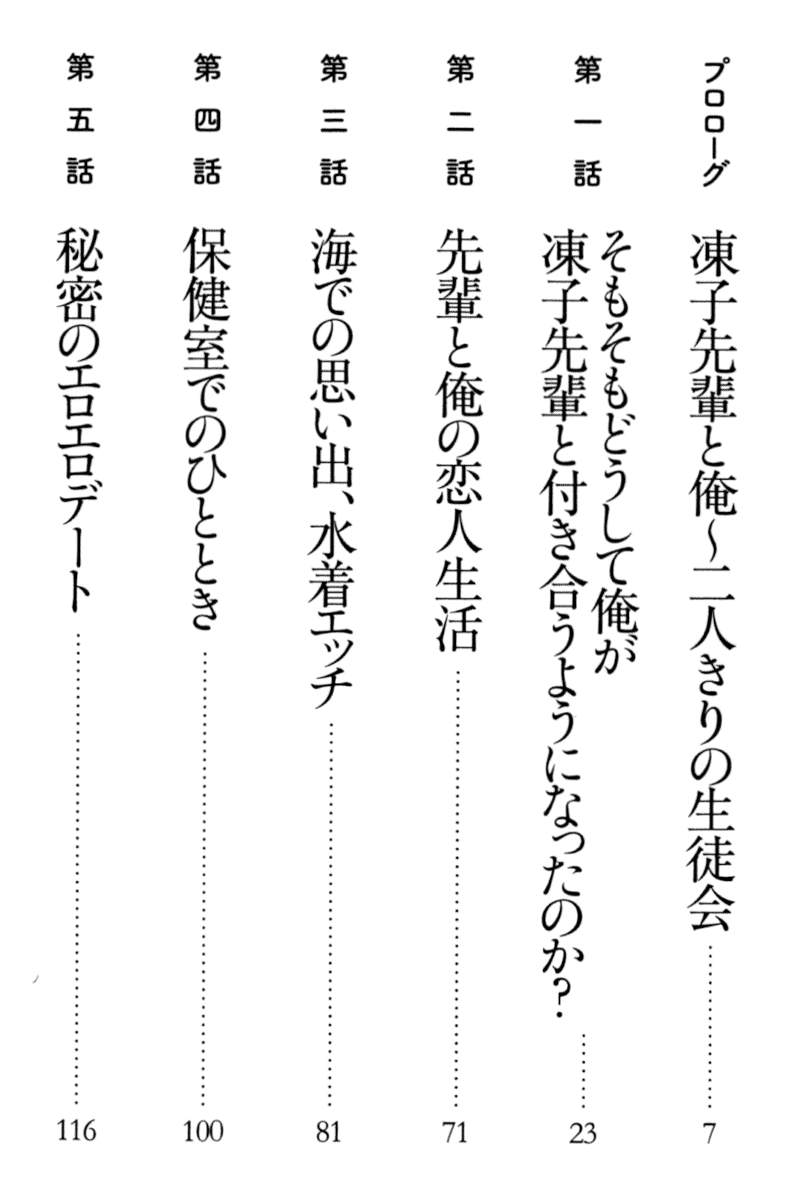 プロローグ 凍子先輩と俺〜二人きりの生徒会 7
第一話 そもそもどうして俺が
凍子先輩と付き合うようになったのか？ 23
第二話 先輩と俺の恋人生活 71
第三話 海での思い出、水着エッチ 81
第四話 保健室でのひととき 100
第五話 秘密のエロエロデート 116